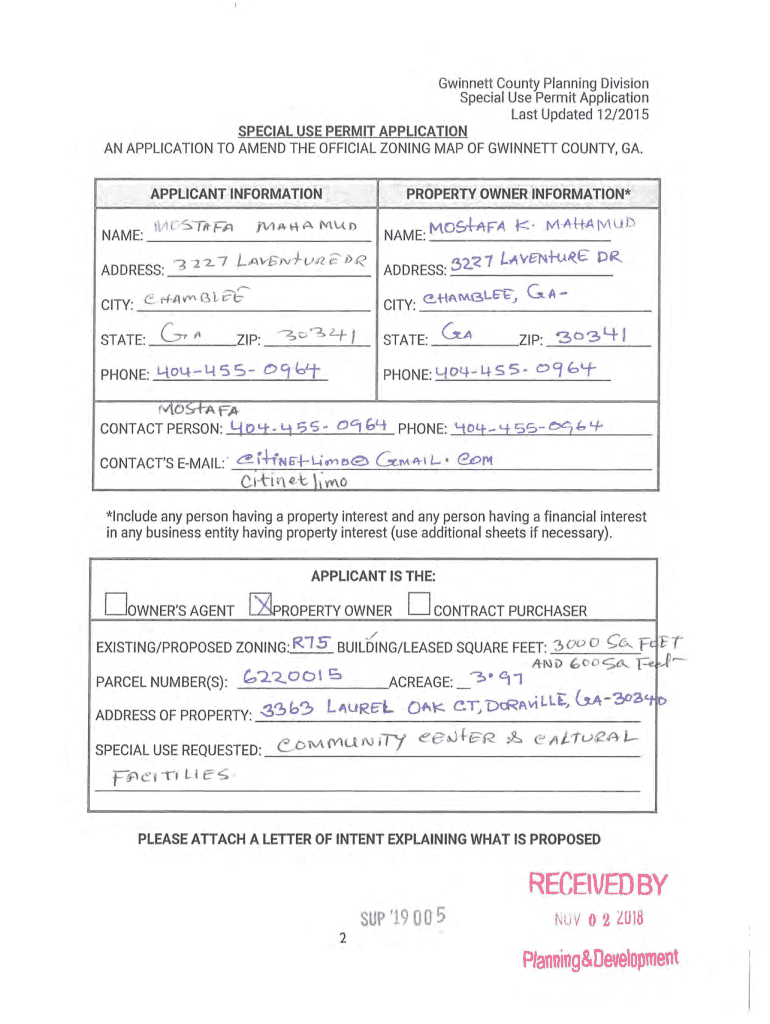 Gwinnett County Planning Division
Special Use Permit Application
Last Updated 12/2015
SPECIAL USE PERMIT APPLICATION
AN APPLICATION TO AMEND THE OFFICIAL ZONING MAP OF GWINNETT COUNTY, GA.
APPLICANT INFORMATION PROPERTY OWNER INFORMATION*
NAME: MOSTAFA MAHAMUD NAME: MOSTAFA K. MAHAMUD
ADDRESS: 3227 LAVENTURE DR ADDRESS: 3227 LAVENTURE DR
CITY: CHAMBLEE CITY: CHAMBLEE, GA-
STATE: GA ZIP: 30341 STATE: GA ZIP: 30341
PHONE: 404-455-0964 PHONE: 404-455-0964
MOSTAFA
CONTACT PERSON: 404-455-0964 PHONE: 404-455-0964
CONTACT'S E-MAIL: CitiNEtLimo@GMAIL.COM
Citinetlimo
*Include any person having a property interest and any person having a financial interest
in any business entity having property interest (use additional sheets if necessary).
APPLICANT IS THE:
OWNER'S AGENT X PROPERTY OWNER CONTRACT PURCHASER
EXISTING/PROPOSED ZONING: R75 BUILDING/LEASED SQUARE FEET: 3000 SQ. FEET
AND 600 SQ Feet
PARCEL NUMBER(S): 6220015 ACREAGE: 3.97
ADDRESS OF PROPERTY: 3363 LAUREL OAK CT, DORAVILLE, GA-30340
SPECIAL USE REQUESTED: COMMUNITY CENTER & CALTURAL
FACITILIES
PLEASE ATTACH A LETTER OF INTENT EXPLAINING WHAT IS PROPOSED
RECEIVED BY
SUP '19 005
NOV 02 2018
2
Planning & Development